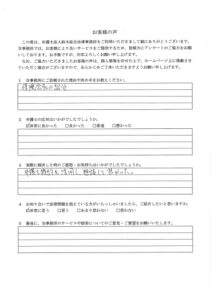 お客様の声
この度は、弁護士法人鈴木総合法律事務所をご利用いただきまして誠にありがとうございます。
当事務所では、お客様により良いサービスをご提供するため、皆様方にアンケートのご協力をお願い
しております。お手数ですが、何卒宜しくお願い申し上げます。
なお、ご協力いただきましたお客様の声は、個人情報を伏せた上で、ホームページ上に掲載させて
いただく場合がございますので、あらかじめご了承いただきますようお願い申し上げます。
1 当事務所にご依頼された理由や決め手をお教えください。
2 弁護士の対応はいかがでしたでしょうか。
非常に良かった □良かった □普通 □悪かった
3 実際に相談した時のご感想・お気持ちはいかがでしたでしょうか。
弁護士特約を活用し、相談して良かった。
4 お知り合いで法律問題を抱えている方がいらっしゃいましたら、ご紹介したいと思いますか。
非常に思う □思う □あまり思わない □思わない
5 最後に、当事務所のサービスや接客についてのご意見・ご要望をお願いいたします。